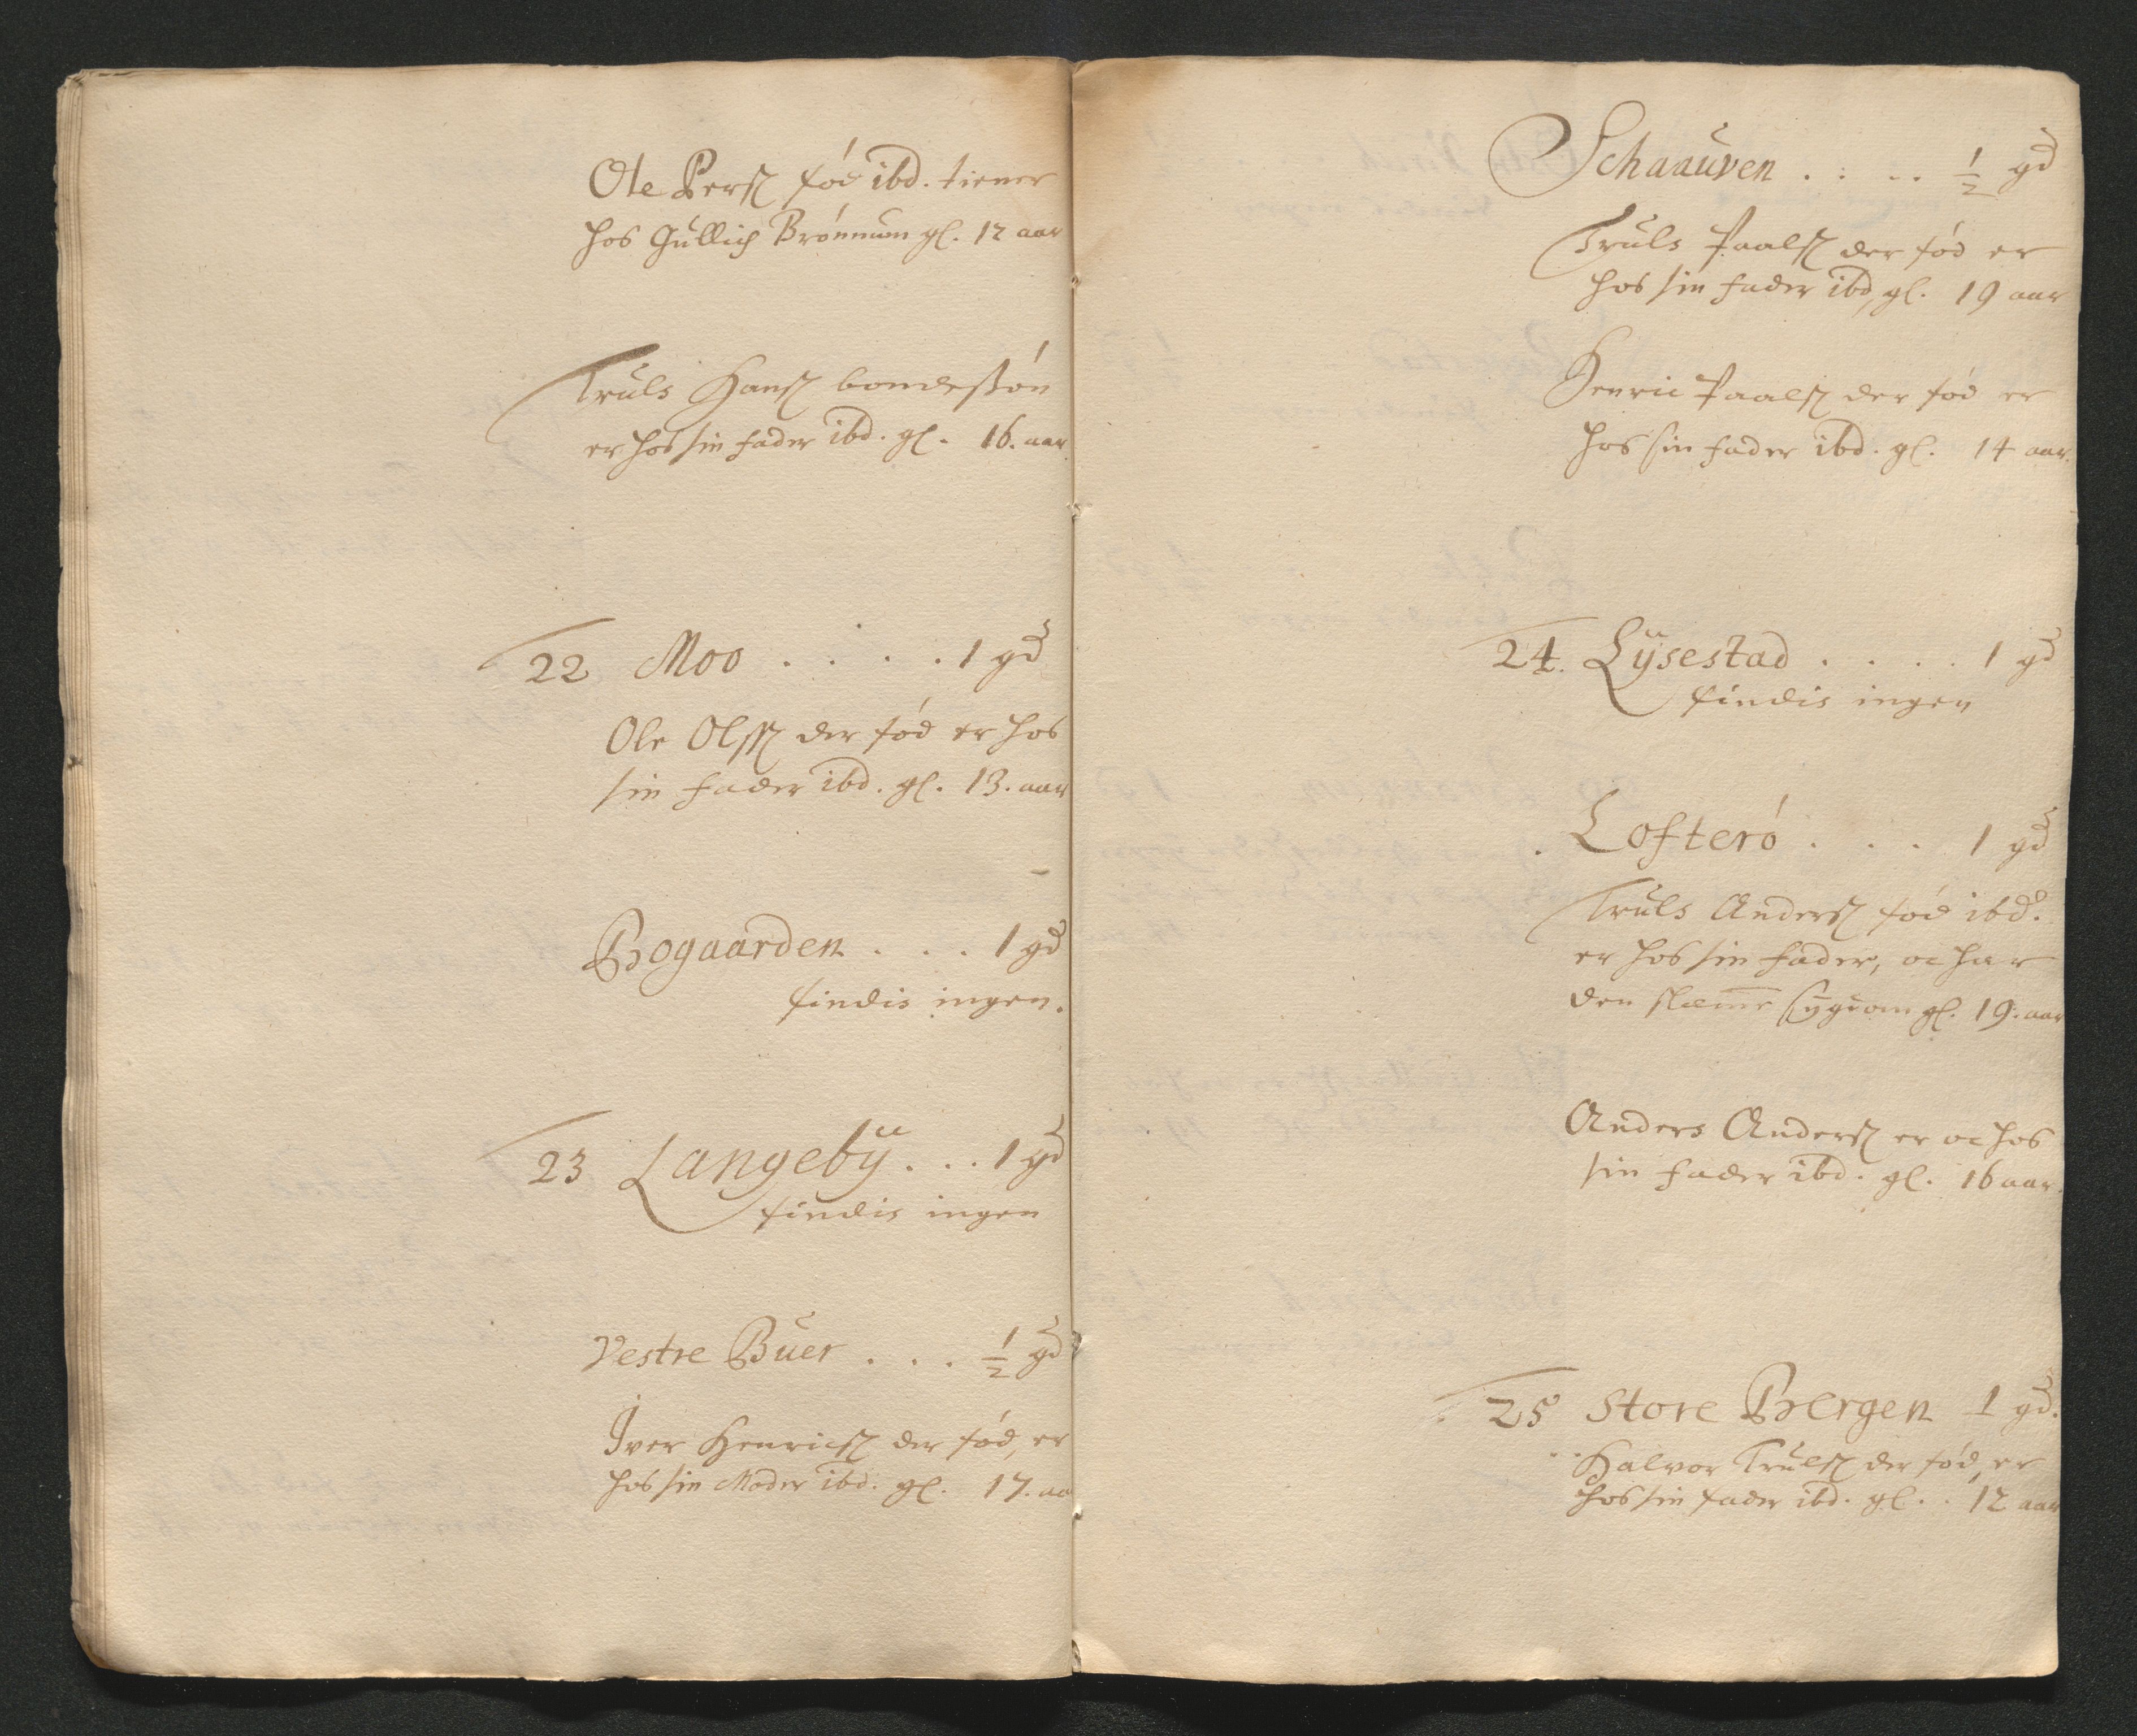 Ole Perss fód ibd. tiener
hos Gullich Brónnum gl. 12 aar
Truls Hanss bondessón
er hos sin fader ibd. gl. 16. aar
22 Moo . . . . 1 gd
Ole Olss der fód er hos
sin fader ibd. gl. 13. aar
Bogaarden . . . 1 gd
findis ingen.
23 Langebÿ . . . 1 gd
findis ingen
Vestre Buer . . . ½ gd
Iver Henricss der fód, er
hos sin Moder ibd. gl. 17. aa
Schaauven . . . . ½ gd
Truls Paalss der fód er
hos sin fader ibd, gl. 19 aar
Henric Paalss der fód er
hos sin fader ibd. gl. 14 aar.
24. Lÿsestad . . . . 1 gd
findis ingen
Lofteró . . . 1 gd
Truls Anderss fód ibd.
er hos sin fader, oc har
den slemme sÿgdom gl. 19. aar
Anders Anderss er oc hos
sin fader ibd. gl. 16 aar.
25 Store Bergen 1 gd.
Halvor Trulss der fód, er
hos sin fader ibd. gl. . 12 aar